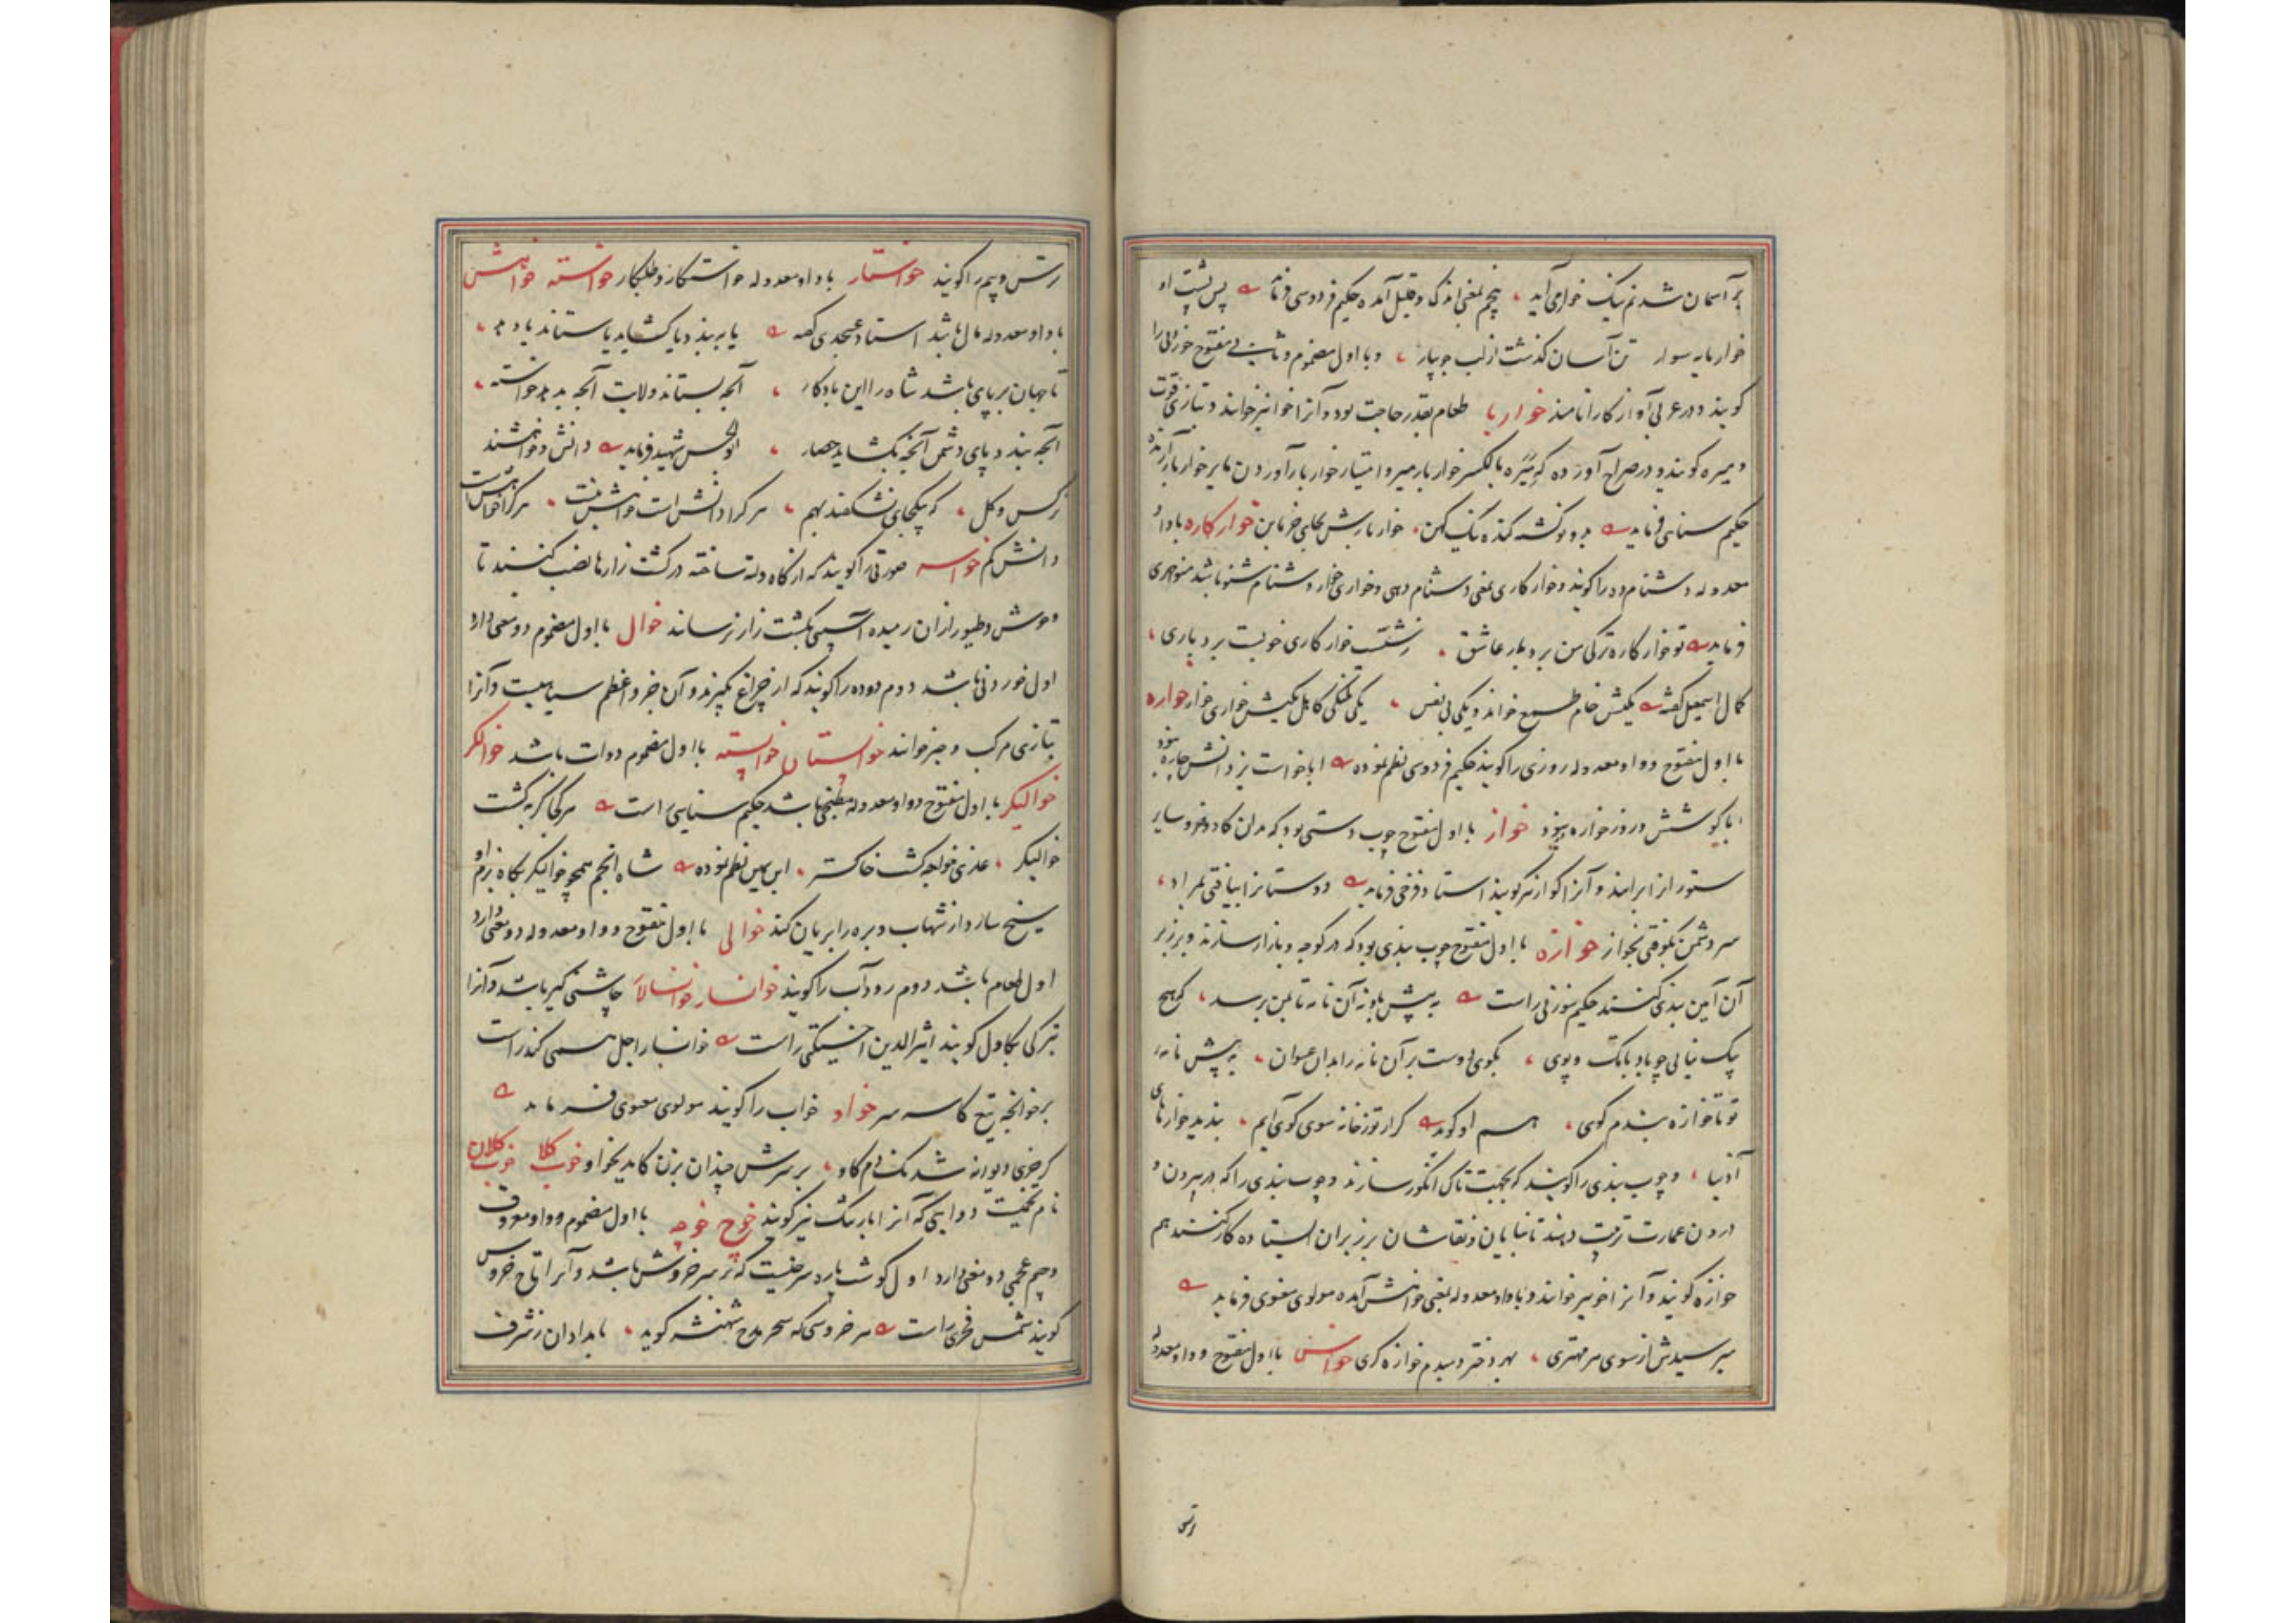 بر آسمان شدنم نیک خوار می آید ، پنجم بمعنی اندک و قلیل آمده حکیم فردوسی فرماید پس پشت او
خوارمایه سوار تن آسان گذشت از لب جویبار ، و با اول مضموم و ثانی مفتوح خوردنی را
گویند و در عربی آواز گاو را نامند خواربار طعام بقدر حاجت بود و آنرا خوار نیز خوانند و بتازی قوت
و میره گویند و در صراح آورده که میره بالکسر خواربار میر و امتیار خواربار آوردن مایر خواربار آرنده
حکیم سنایی فرماید خواربارش بجای خرما بن خوارکاره باواو
معدوله دشنام ده را گویند و خوارکاری بمعنی دشنام دهی و خواری خوار دشنام شنو باشد منوچهری
فرماید تو خوارکاره ترکی من بردبار عاشق ، زشتست خوارکاری خوبست بردباری ،
کمال اسمعیل گفته یکیش خام طمع خواند و یکی بی نفس ، یکی گدا کاهل یکیش خواری خوار خواره
با اول مفتوح و واو معدوله روزی را گویند حکیم فردوسی نظم نموده ابا خواست یزدانش چاره نبود
ابا کوشش و روز خواره نبود خواز با اول مفتوح چوب دستی بود که بدان گاو و خر و سایر
ستور از ابرانند و آنرا گواز نیز گویند استاد فرخی فرماید دوستانرا بیافتی بمراد ،
سر دشمن بکوفتی بخواز خوازه با اول مفتوح چوب بندی بود که در کوچه و بازار سازند و بر زبر
آن آیین بندی کنند حکیم سوزنی راست به پیش باز آن نامه تا بمن برسد ، که هیچ
پیک نیابی چو باد بابک و پوی ، بگوی دوست بر آن نامه را بدان عنوان ، به پیش نامه
تو تا خوازه بندم کوی ، هم او گوید گر از تو ز خانه سوی کوی آیم ، بندید خوازهای
آذینها ، و چوب بندی را گویند که بجهت تاک انگور سازند و چوب بندی را که در بیرون و
درون عمارت ترتیب دهند تا بنایان و نقاشان بر زبر آن ایستاده کار کنند هم
خوازه گویند و آنرا خو نیز خوانند و باواو معدوله بمعنی خواهش آمده مولوی معنوی فرماید
میر سیدش از سوی هر مهتری ، بهر دختر دمبدم خوازه گری خواس با اول مفتوح و واو معدوله
ترس
ترس و بیم را گویند خواستار باواو معدوله خواستکار و طلبکار خواسته خواهش
باواو معدوله مال باشد استاد عنجدی گفته یا ببندد یا گشاید یا ستاند یا دهد ،
تا جهان برپای باشد شاه را این یادگار ، آنچه بستاند ولایت آنچه بدهد خواسته ،
آنچه بندد پای دشمن آنچه بگشاید حصار ، ابوالحسن شهید فرماید دانش و خواسته
نرگس و گل ، که بیکجای نشکفند بهم ، هر کرا دانش است خواسته نیست ، هر کرا خواسته است
دانش کم خواسه صورتی را گویند که از کاه و لته ساخته در کشت زارها نصب کنند تا
وحوش و طیور از آن رمیده آسیبی بکشت زار نرساند خوال با اول مضموم دو معنی دارد
اول خوردنی باشد دوم دوده را گویند که از چراغ گیرند و آن جزو اعظم سیاهیست و آنرا
بتازی مرکب و حبر خوانند خوالستان خوالسته با اول مضموم دوات باشد خوالگر
خوالیگر با اول مفتوح و واو معدوله مطبخی باشد حکیم سنایی راست هر کجا گربه گشت
خوالیگر ، عذر خواجه کشت خاکستر ، ابن یمین نظم نموده شاه انجم همچو خوالیگر بگاه بزم او
سیخ سازد از شهاب و بره را بریان کند خوالی با اول مفتوح و واو معدوله دو معنی دارد
اول طعام باشد دوم رود آب را گویند خوانسار خوانسالار چاشنی گیر باشد و آنرا
بترکی بکاول گویند اثیرالدین اخسیکتی راست خوانسار اجل همی گذراست
بر خوانچه تیغ کاسه سر خواو خواب را گویند مولوی معنوی فرماید
گر خری دیوانه شد نک دم گاو ، بر سرش چندان بزن کاید بخواو خوب کلا خوب کلان
نام تخمیست دوایی که آنرا بارتنگ نیز گویند خوچ خوچه با اول مضموم و واو معروف
و جیم عجمی دو معنی دارد اول گوشت پاره سرخیست که بر سر خروس باشد و آنرا تاج خروس
گویند شمس فخری راست سر خروسی که سحر مدح شهنشه گوید ، بامدادان ز شرف